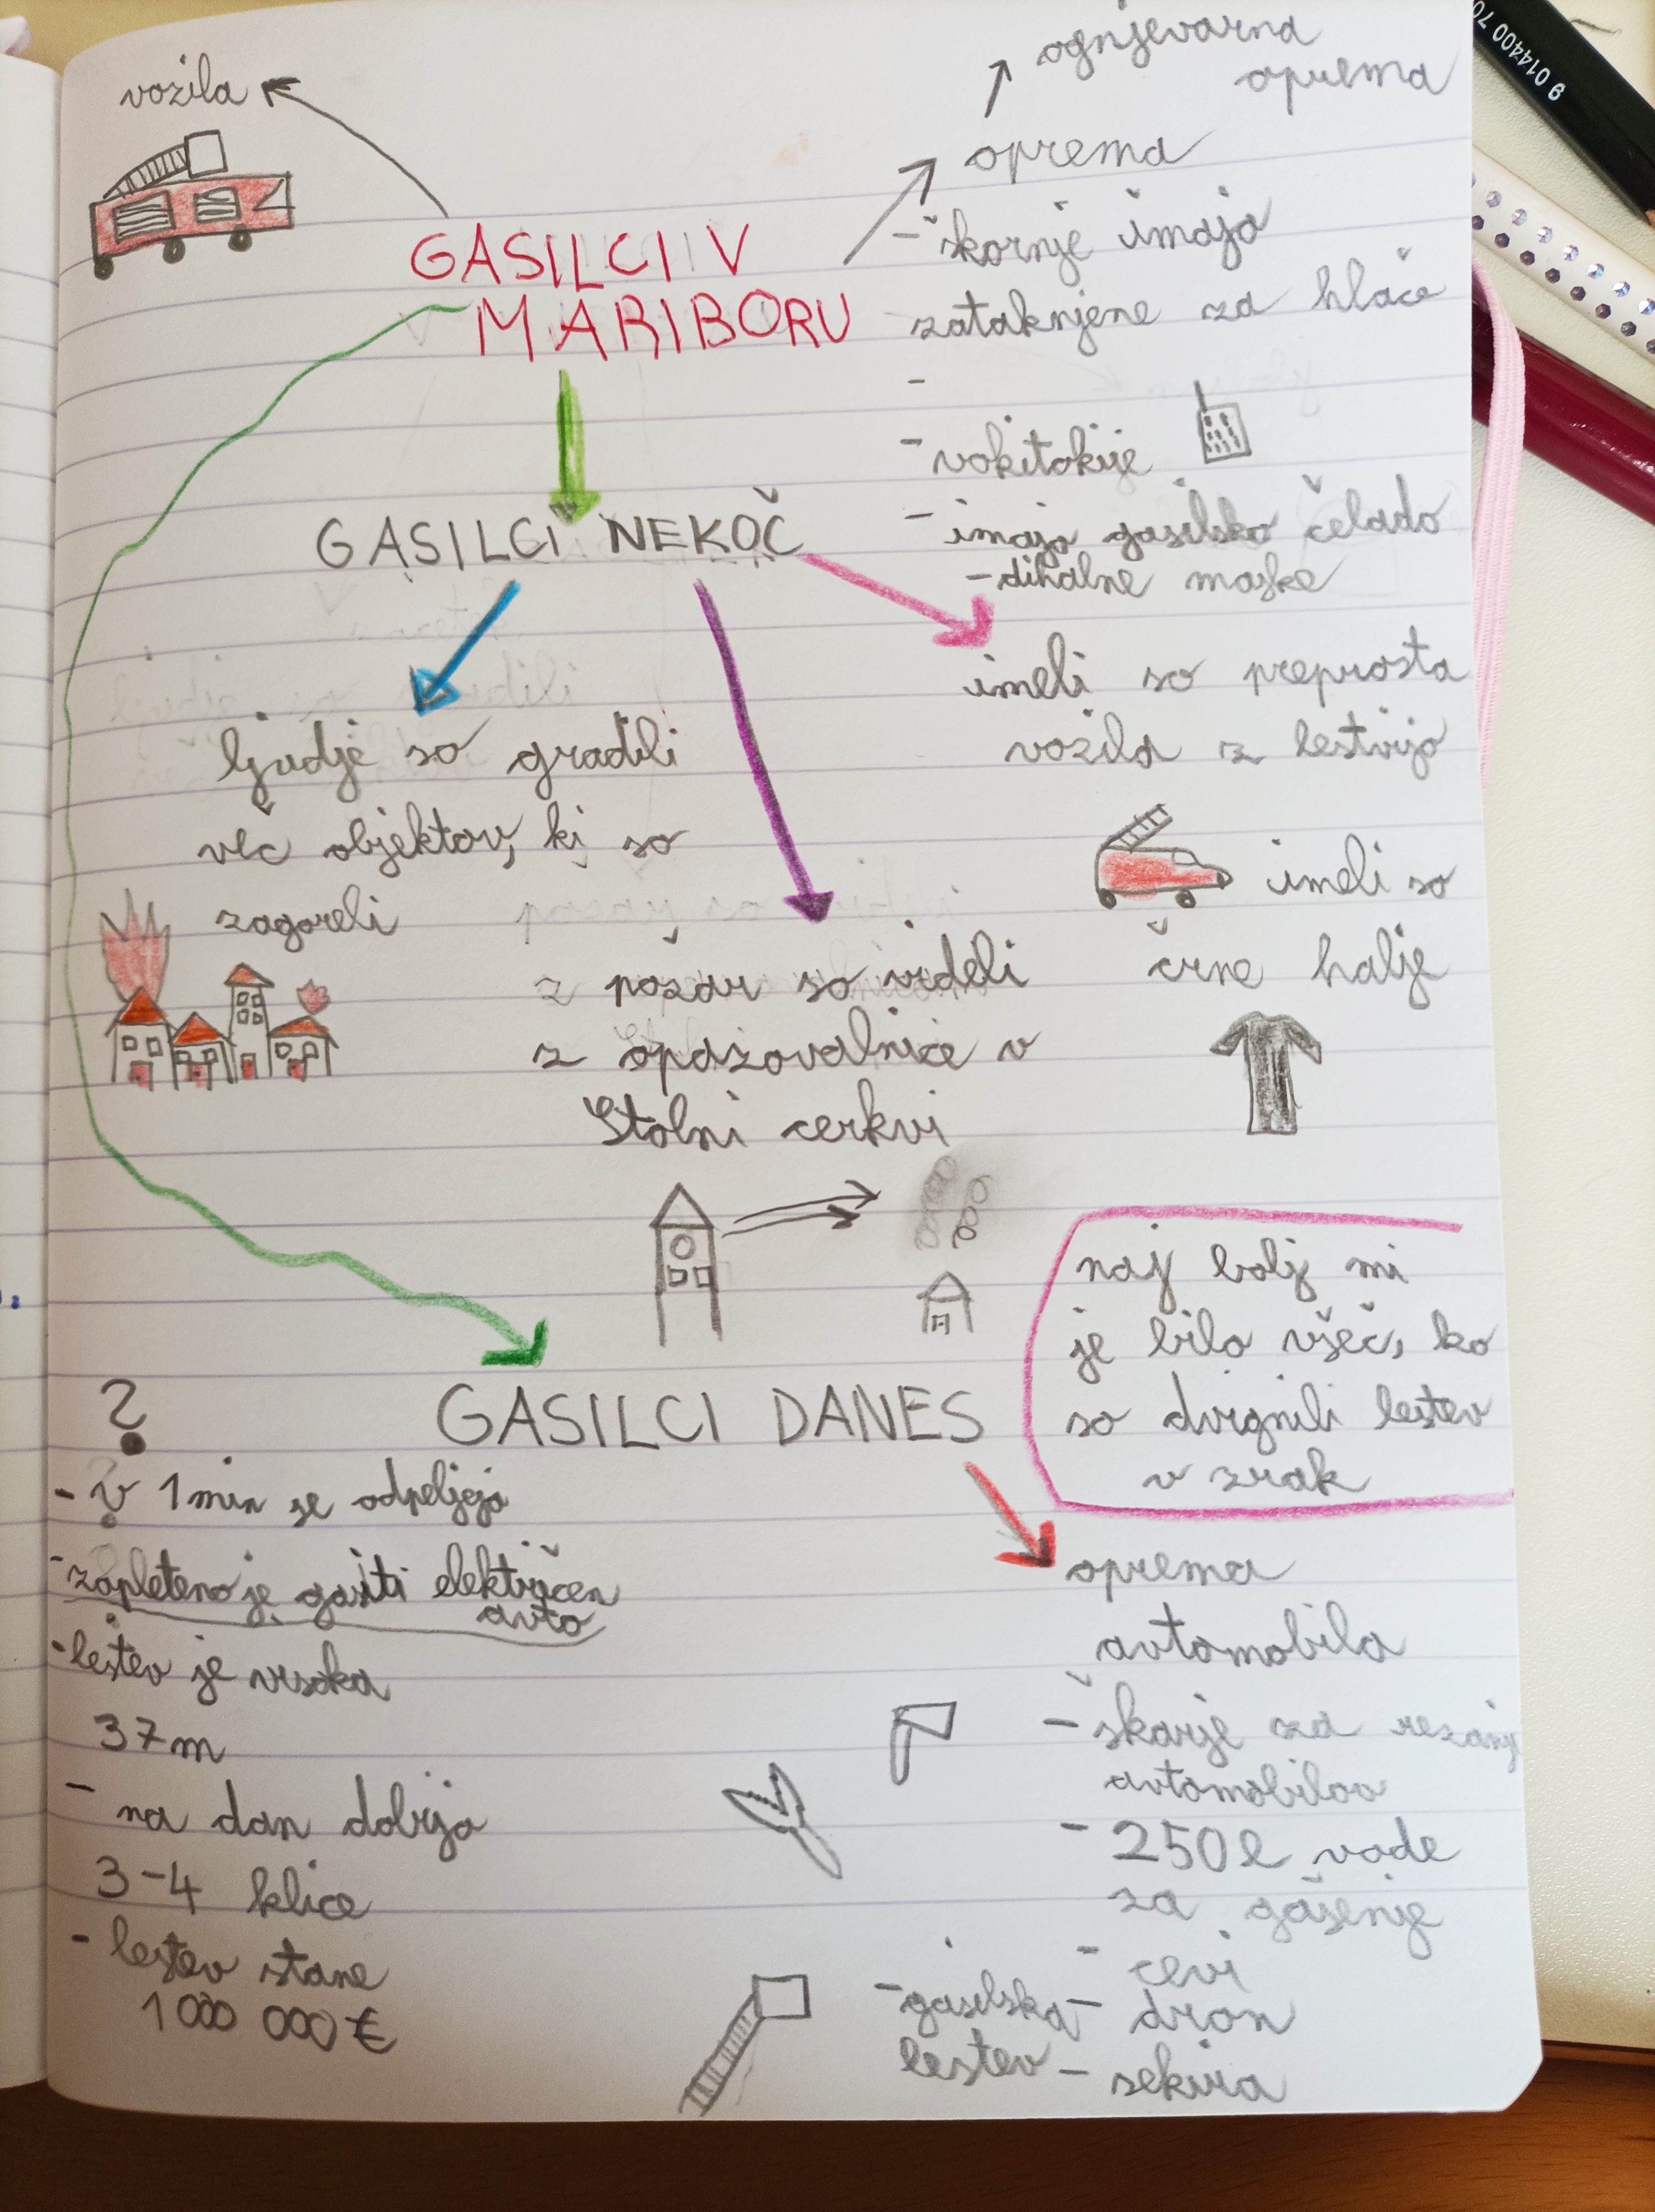 vozila
ognjevarna
oprema
oprema
GASILCI V
MARIBORU
- škornje imajo
zataknjene za hlače
-
- vokitokije
- imajo gasilsko čelado
- dihalne maske
GASILCI NEKOČ
imeli so preprosta
vozila z lestvijo
ljudje so gradili
več objektov, ki so
zagoreli
imeli so
črne halje
z požar so videli
z opazovalnice v
Stolni cerkvi
naj bolj mi
je bilo všeč, ko
so dvignili lestev
v zrak
GASILCI DANES
?
- v 1 min se odpeljejo
- zapleteno je gasiti električen
avto
- lestev je visoka
37 m
- na dan dobijo
3-4 klice
- lestev stane
1 000 000 €
oprema
avtomobila
- škarje za rezanje
avtomobilov
- 250 l vode
za gašenje
- cevi
- gasilska
lestev
- dron
- sekira
9 014400 70